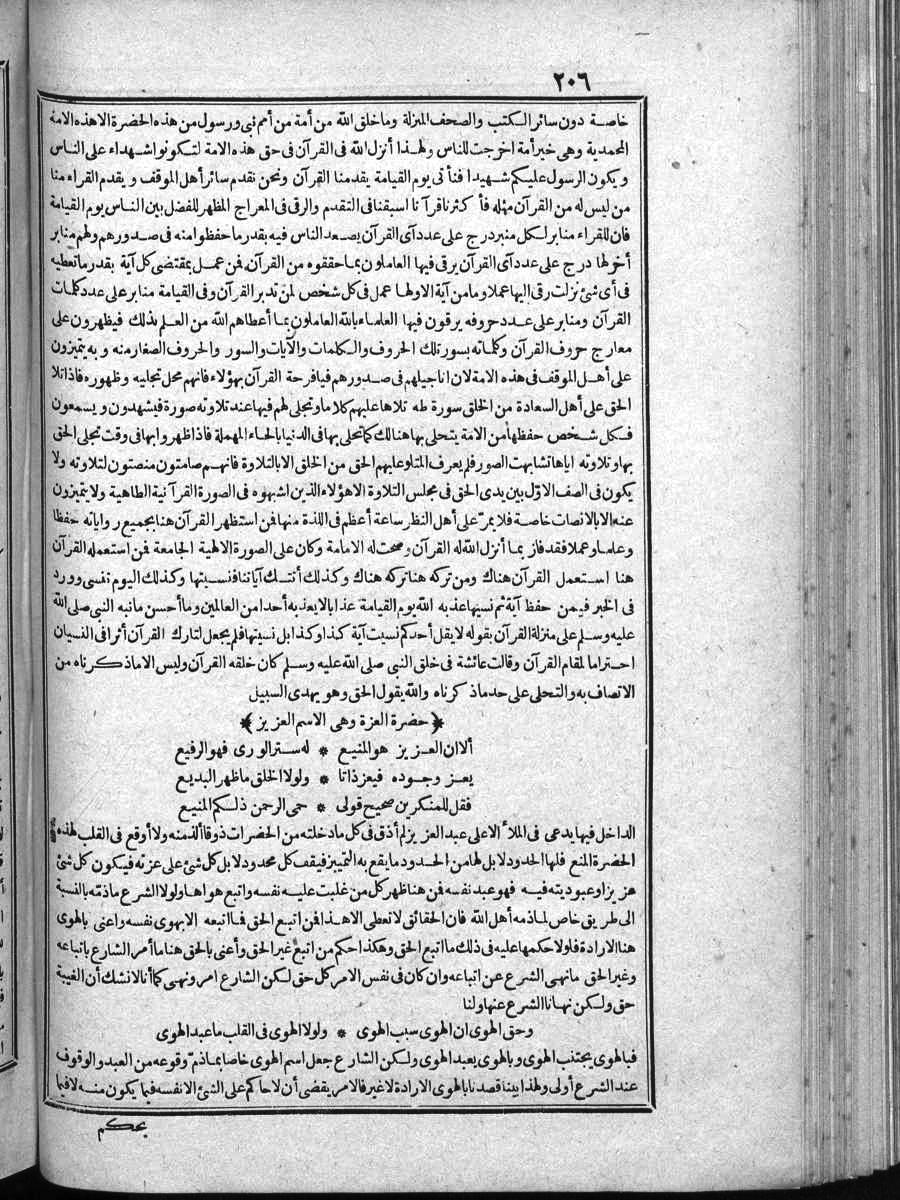 ٢٠٦
خاصة دون سائر الكتب والصحف المنزلة وما خلق الله من أمة من أمم نبي ورسول من هذه الحضرة الا هذه الامة
المحمدية وهي خير أمة اخرجت للناس ولهذا أنزل الله فى القرآن فى حق هذه الامة لتكونوا شهداء على الناس
ويكون الرسول عليكم شهيدا فنأتى يوم القيامة يقدمنا القرآن ونحن نقدم سائر أهل الموقف ويقدم القراء منا
من ليس له من القرآن مثله فأكثرنا قرآنا أسبقنا فى التقدم والرقى فى المعراج المظهر للفضل بين الناس يوم القيامة
فان للقراء منابر لكل منبر درج على عدد آى القرآن يصعد الناس فيه بقدر ما حفظوا منه فى صدورهم ولهم منابر
أخر لها درج على عدد آى القرآن يرقى فيها العاملون بما حققوه من القرآن فمن عمل بمقتضى كل آية بقدر ما تعطيه
فى أى شئ نزلت رقى اليها عملا وما من آية الا ولها عمل فى كل شخص لمن تدبر القرآن وفى القيامة منابر على عدد كلمات
القرآن ومنابر على عدد حروفه يرقون فيها العلماء بالله العاملون بما أعطاهم الله من العلم بذلك فيظهرون على
معارج حروف القرآن وكلماته بسور تلك الحروف والكلمات والآيات والسور والحروف الصغار منه وبه يتميزون
على أهل الموقف فى هذه الامة لان اناجيلهم فى صدورهم فيا فرحة القرآن بهؤلاء فانهم محل تجليه وظهوره فاذا تلا
الحق على أهل السعادة من الخلق سورة طه تلاها عليهم كلاما وتجلى لهم فيها عند تلاوته صورة فيشهدون ويسمعون
فكل شخص حفظها من الامة يتحلى بها هنالك كما تحلى بها فى الدنيا بالحاء المهملة فاذا ظهروا بها فى وقت تجلى الحق
بها وتلاوته اياها تشابهت الصور فلم يعرف المتلو عليهم الحق من الخلق الا بالتلاوة فانهم صامتون منصتون لتلاوته ولا
يكون فى الصف الاوّل بين يدى الحق فى مجلس التلاوة الا هؤلاء الذين اشبهوه فى الصورة القرآنية الطاهية ولا يتميزون
عنه الا بالانصات خاصة فلا يمرّ على أهل النظر ساعة أعظم فى اللذة منها فمن استظهر القرآن هنا بجميع رواياته حفظا
وعلما وعملا فقد فاز بما أنزل الله له القرآن وصحت له الامامة وكان على الصورة الالهية الجامعة فمن استعمله القرآن
هنا استعمل القرآن هناك ومن تركه هنا تركه هناك وكذلك أتتك آياتنا فنسيتها وكذلك اليوم تنسى وورد
فى الخبر فيمن حفظ آية ثم نسيها عذبه الله يوم القيامة عذابا لا يعذبه أحدا من العالمين وما أحسن ما نبه النبى صلى الله
عليه وسلم على منزلة القرآن بقوله لا يقل أحدكم نسيت آية كذا وكذا بل نسيتها فلم يجعل لتارك القرآن أثرا فى النسيان
احتراما لمقام القرآن وقالت عائشة فى خلق النبى صلى الله عليه وسلم كان خلقه القرآن وليس الا ما ذكرناه من
الاتصاف به والتحلى على حد ما ذكرناه والله يقول الحق وهو يهدى السبيل
﴿حضرة العزة وهى الاسم العزيز﴾
ألا ان العزيز هو المنيع * له ستر الورى فهو الرفيع
يعز وجوده فيعز ذاتا * ولولا الخلق ما ظهر البديع
فقل للمنكرين صحيح قولى * حمى الرحمن ذلكم المنيع
الداخل فيها يدعى فى الملأ الاعلى عبد العزيز لم أذق فى كل ما دخلته من الحضرات ذوقا ألذ منه ولا أوقع فى القلب لهذه
الحضرة المنع فلها الحدود لا بل لها من الحدود ما يقع به التمييز فيقف كل محدود لا بل كل شئ على عزته فيكون كل شئ
عزيزا وعبوديته فيه فهو عبد نفسه فمن هنا ظهر كل من غلبت عليه نفسه واتبع هواها ولولا الشرع ما ذمّه بالنسبة
الى طريق خاص لما ذمه أهل الله فان الحقائق لا تعطى الا هذا فمن اتبع الحق فما اتبعه الا بهوى نفسه وأعنى بالهوى
هنا الارادة فلولا حكمها عليه فى ذلك ما اتبع الحق وهكذا حكم من اتبع غير الحق وأعنى بالحق هنا ما أمر الشارع باتباعه
وغير الحق ما نهى الشرع عن اتباعه وان كان فى نفس الامر كل حق لكن الشارع امر ونهى كما أنا لا نشك أن الغيبة
حق ولكن نهانا الشرع عنها ولنا
وحق الهوى ان الهوى سبب الهوى * ولولا الهوى فى القلب ما عبد الهوى
فبالهوى يجتنب الهوى وبالهوى يعبد الهوى ولكن الشارع جعل اسم الهوى خاصا بما ذمّ وقوعه من العبد والوقوف
عند الشرع أولى ولهذا بينا قصدنا بالهوى الارادة لا غير فالامر يقضى أن لا حاكم على الشئ الا نفسه فيما يكون منه لا فيما
يحكم